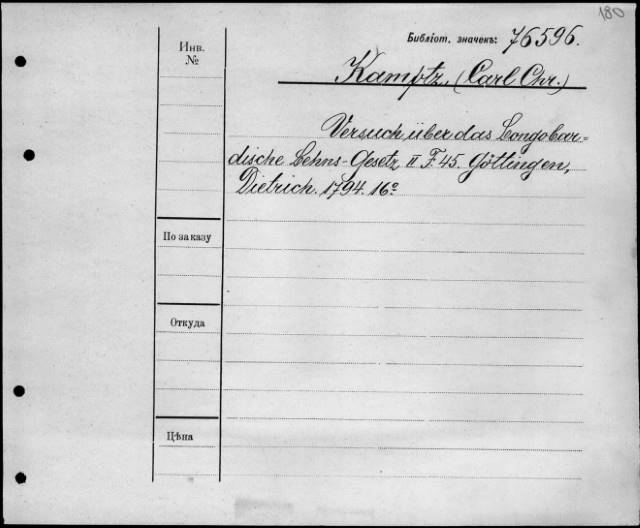 180
Библіот. значекъ: 76596.
Инв.
№
Kamptz, (Carl Chr.)
Versuch über das Longobar-
dische Lehns-Gesetz II F. 45. Göttingen,
Dietrich. 1794. 16º
По заказу
Откуда
Цѣна